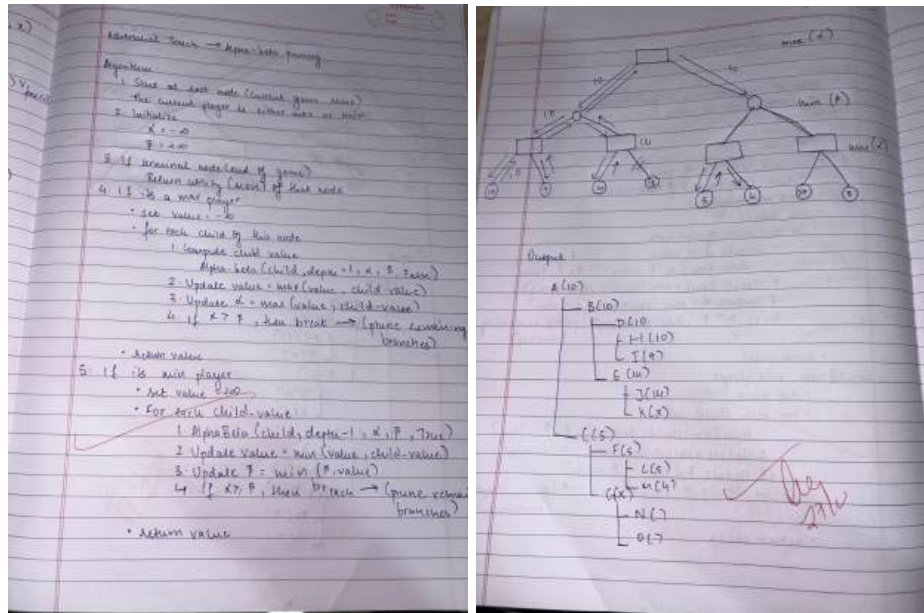 Adversarial Search → Alpha-beta pruning
Algorithm
1. Start at root node (current game state)
The current player is either MAX or MIN
2. Initialize
α = -∞
β = +∞
3. If terminal node (end of game)
Return utility (score) of that node
4. If is a max player
• set value = -∞
• for each child of this node
1. Compute child value
Alpha-beta (child, depth-1, α, β, False)
2. Update value = max (value, child value)
3. Update α = max (value, child-value)
4. If α ≥ β, then break → (prune remaining
branches)
• return value
5. If is min player
• set value = +∞
• For each child-value
1. AlphaBeta (child, depth-1, α, β, True)
2. Update value = min (value, child-value)
3. Update β = min (β, value)
4. If α ≥ β, then break → (prune remai
branches)
• return value
max (α)
10
10
min (β)
14
max (α)
10
9
14
5
4
Output:
A(10)
B(10)
D(10
H(10)
I(9)
E(14)
J(14)
K(X)
C(5)
F(5)
L(5)
M(4)
G(X)
N( )
O( )